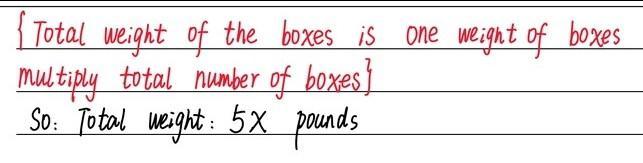 {Total weight of the boxes is one weight of boxes
multiply total number of boxes}
So: Total weight: 5X pounds